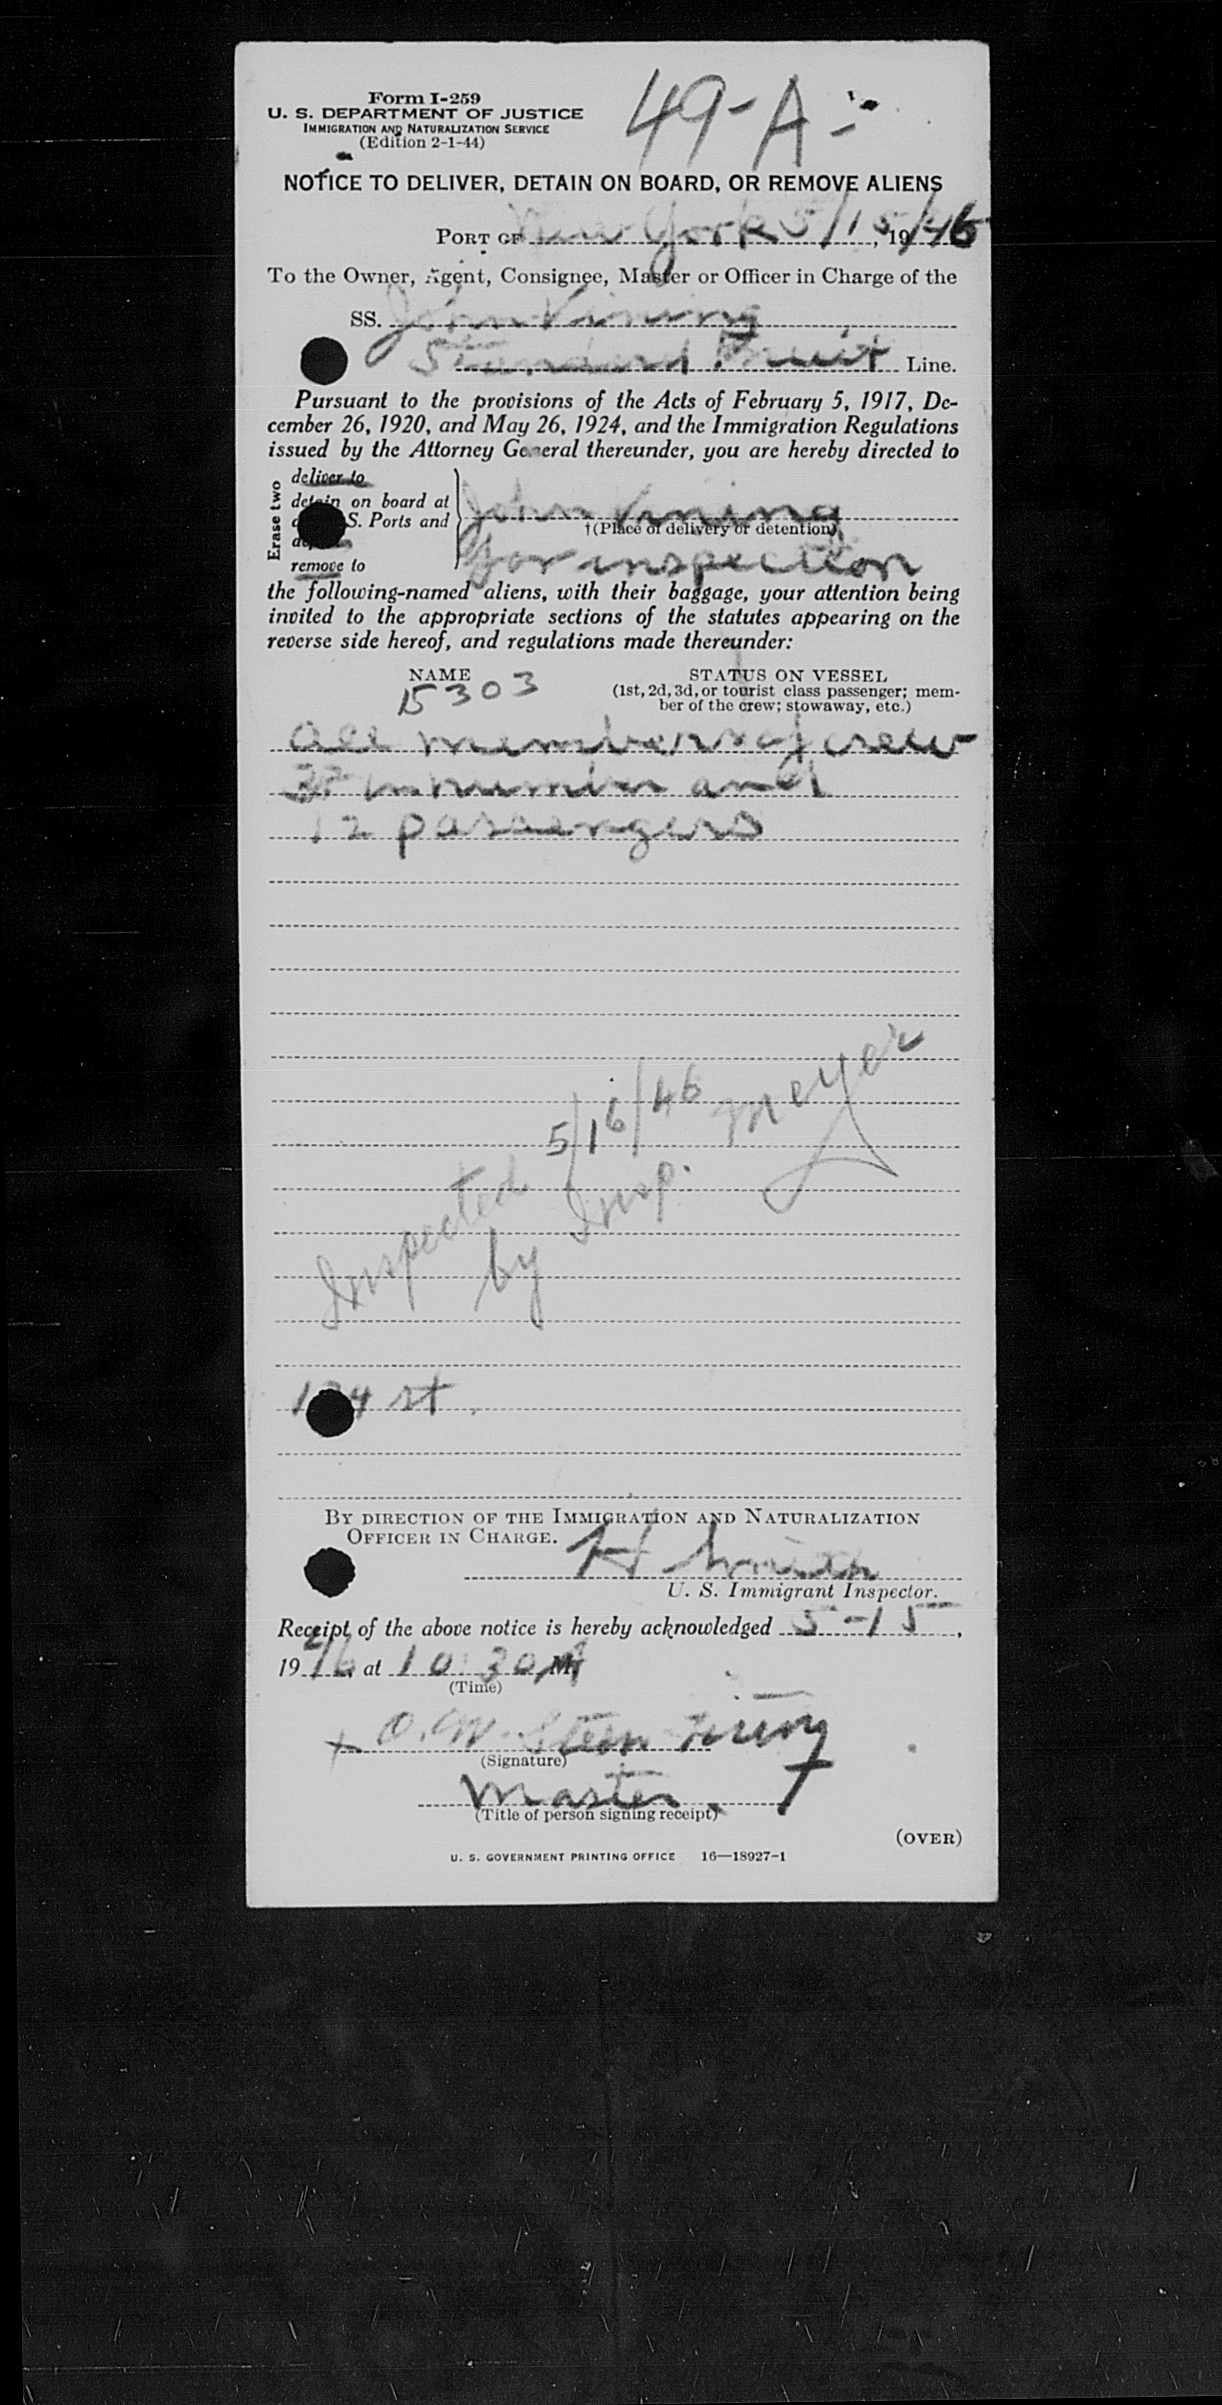 Form I-259
49-A-
U. S. DEPARTMENT OF JUSTICE
IMMIGRATION AND NATURALIZATION SERVICE
(Edition 2-1-44)
NOTICE TO DELIVER, DETAIN ON BOARD, OR REMOVE ALIENS
PORT OF New York 5/15, 19/46
To the Owner, Agent, Consignee, Master or Officer in Charge of the
SS. John Vining
Standard Fruit Line.
Pursuant to the provisions of the Acts of February 5, 1917, De-
cember 26, 1920, and May 26, 1924, and the Immigration Regulations
issued by the Attorney General thereunder, you are hereby directed to
Erase two
deliver to
detain on board at
S. Ports and
remove to
John Vining
†(Place of delivery or detention)
for inspection
the following-named aliens, with their baggage, your attention being
invited to the appropriate sections of the statutes appearing on the
reverse side hereof, and regulations made thereunder:
NAME
STATUS ON VESSEL
15303
(1st, 2d, 3d, or tourist class passenger; mem-
ber of the crew; stowaway, etc.)
all members of crew
in number and
12 passengers
Inspected 5/16/46
by Insp. Meyer
st.
BY DIRECTION OF THE IMMIGRATION AND NATURALIZATION
OFFICER IN CHARGE.
H
U. S. Immigrant Inspector.
Receipt of the above notice is hereby acknowledged 5-15,
1946, at 10:30 A M.
(Time)
x O. W.
(Signature)
Master
(Title of person signing receipt)
(OVER)
U. S. GOVERNMENT PRINTING OFFICE 16—18927-1